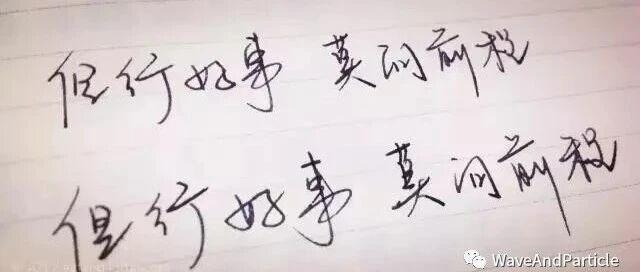 但行好事 莫问前程
但行好事 莫问前程
WaveAndParticle